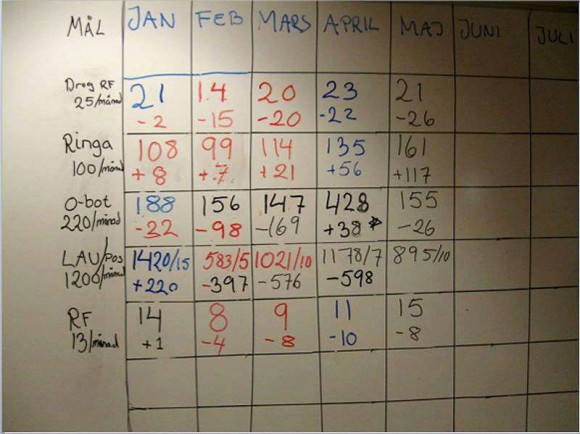 MÅL JAN FEB MARS APRIL MAJ JUNI JULI
Drog RF 21 14 20 23 21
25/månad -2 -15 -20 -22 -26
Ringa 108 99 114 135 161
100/månad +8 +7 +21 +56 +117
O-bot 188 156 147 428 155
220/månad -32 -98 -169 +38 -26
LAU/Pos 1420/15 583/5 1021/10 1178/7 895/10
1200/månad +220 -397 -576 -598
RF 14 8 9 11 15
13/månad +1 -4 -8 -10 -8